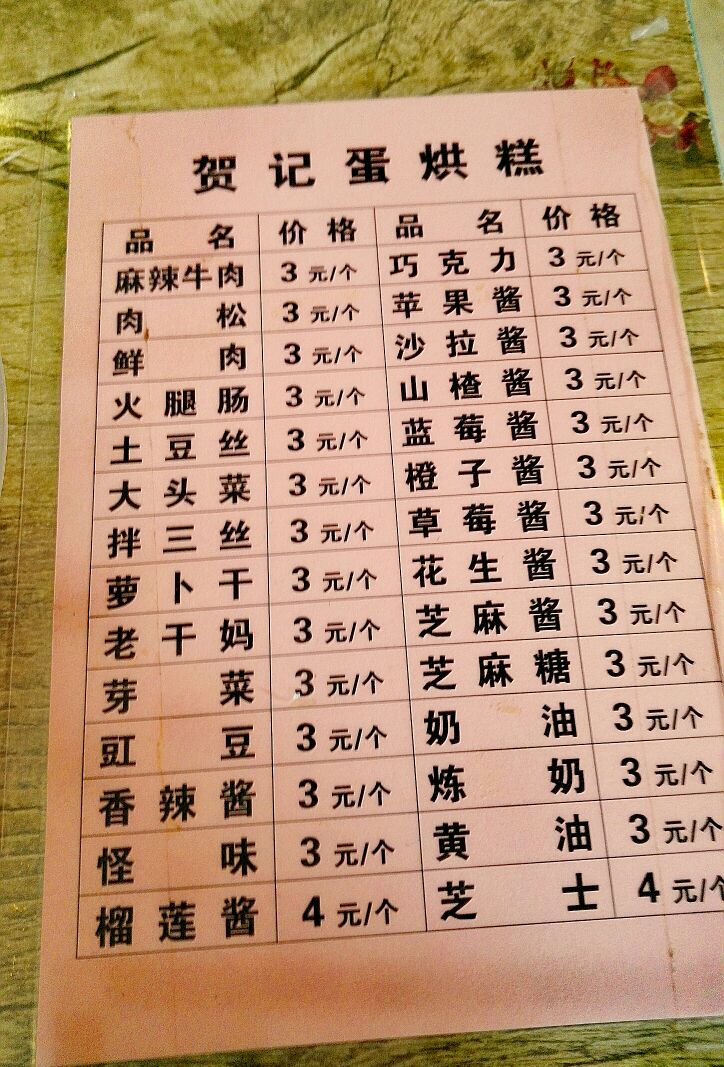 贺记蛋烘糕
品名 价格 品名 价格
麻辣牛肉 3元/个 巧克力 3元/个
肉松 3元/个 苹果酱 3元/个
鲜肉 3元/个 沙拉酱 3元/个
火腿肠 3元/个 山楂酱 3元/个
土豆丝 3元/个 蓝莓酱 3元/个
大头菜 3元/个 橙子酱 3元/个
拌三丝 3元/个 草莓酱 3元/个
萝卜干 3元/个 花生酱 3元/个
老干妈 3元/个 芝麻酱 3元/个
芽菜 3元/个 芝麻糖 3元/个
豇豆 3元/个 奶油 3元/个
香辣酱 3元/个 炼奶 3元/个
怪味 3元/个 黄油 3元/个
榴莲酱 4元/个 芝士 4元/个